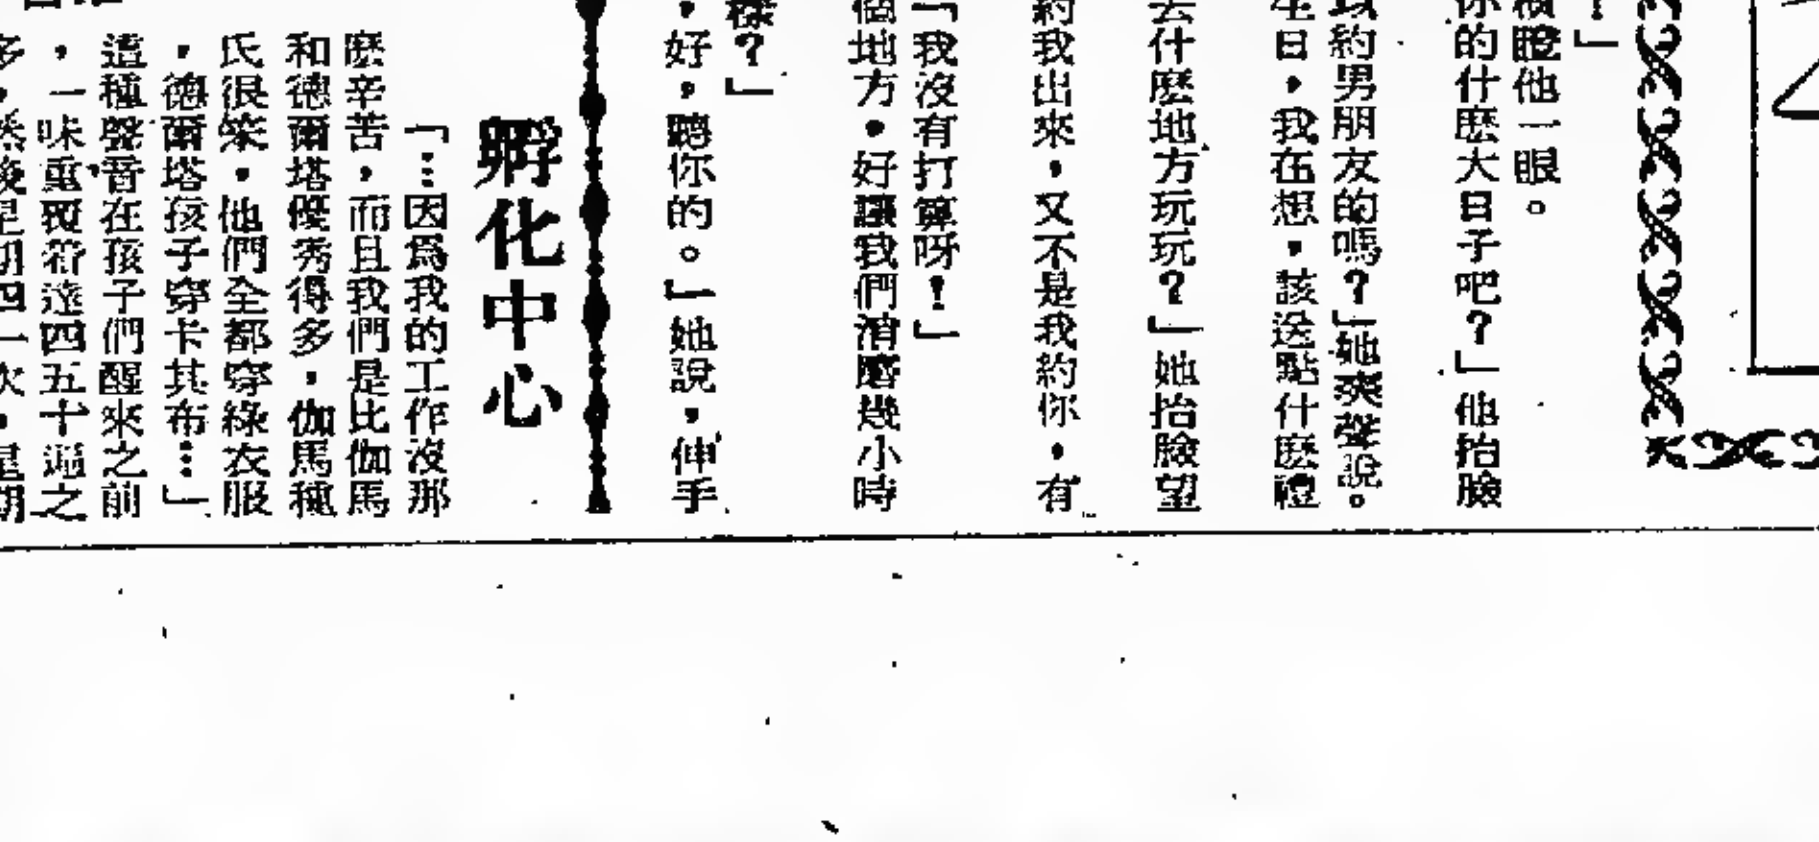 ！」
橫瞪他一眼。
你的什麼大日子吧？」他抬臉
約男朋友的嗎？」她爽聲說。
生日，我在想，該送點什麼禮
去什麼地方玩玩？」她抬臉望
約我出來，又不是我約你，有
「我沒有打算呀！」
個地方。好讓我們消磨幾小時
樣？」
，好，聽你的。」她說，伸手
孵化中心
「…因爲我的工作沒那
麽辛苦，而且我們是比伽馬
和德爾塔優秀得多，伽馬種
氏很笨，他們全都穿綠衣服
，德爾塔孩子穿卡其布…」
這種聲音在孩子們醒來之前
，一味重覆着達四五十遍之
多，然後星期四一次，星期